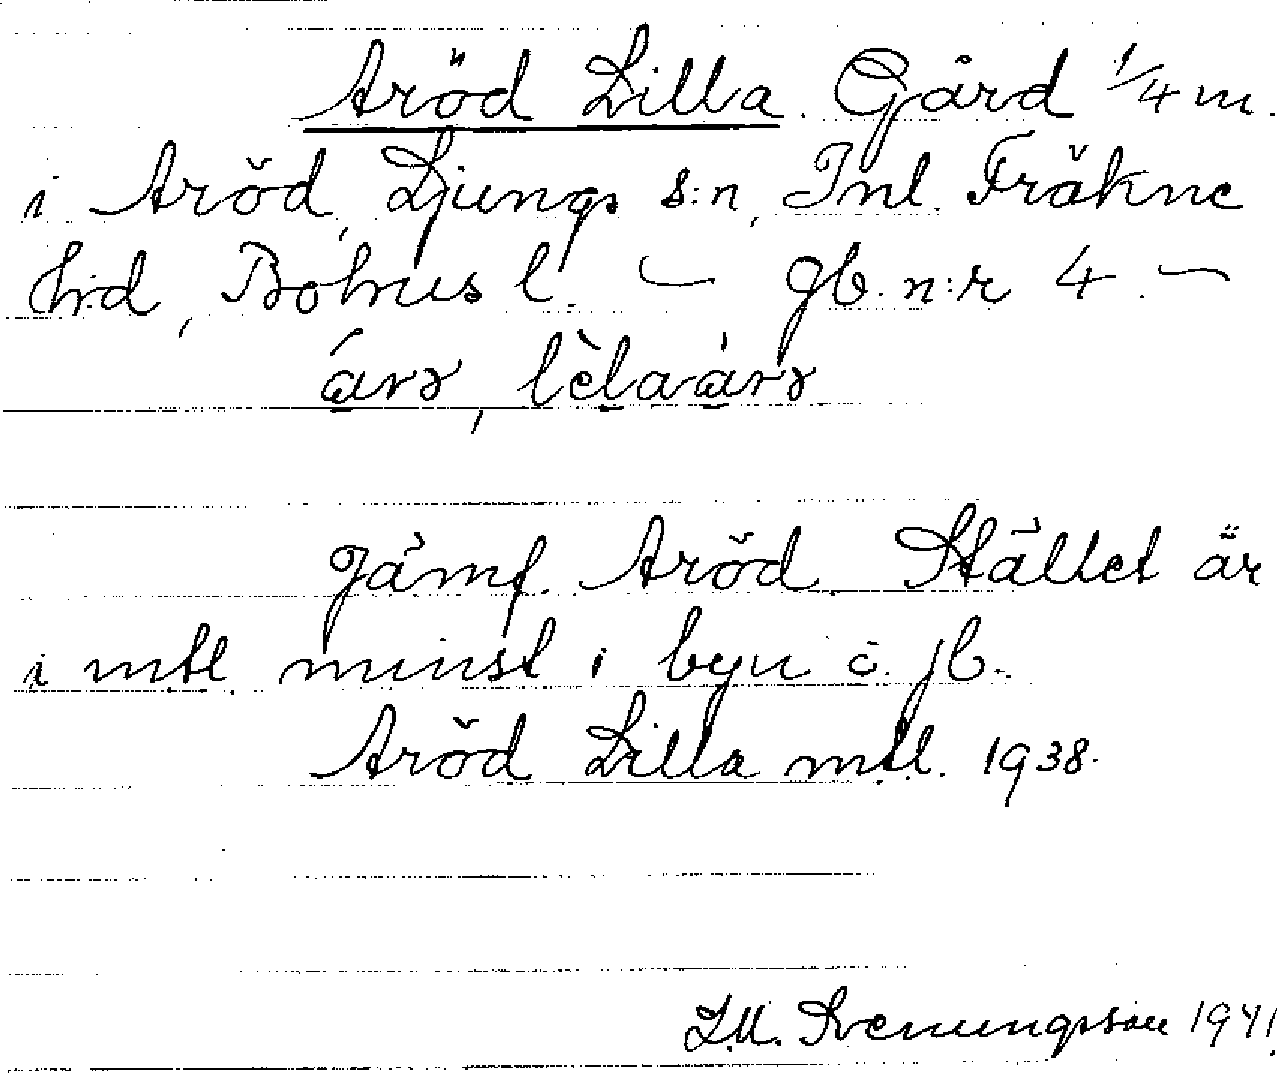 Aröd Lilla. Gård 1/4 m.
i Aröd, Ljungs s:n, Inl. Fräkne
h:d, Bohus l. — gb. n:r 4. —
árɤ, lèlaárɤ
Jämf. Aröd. Stället är
i mtl. minst i byn ö. jb.
Aröd Lilla mtl. 1938.
Svenungsson 1941.